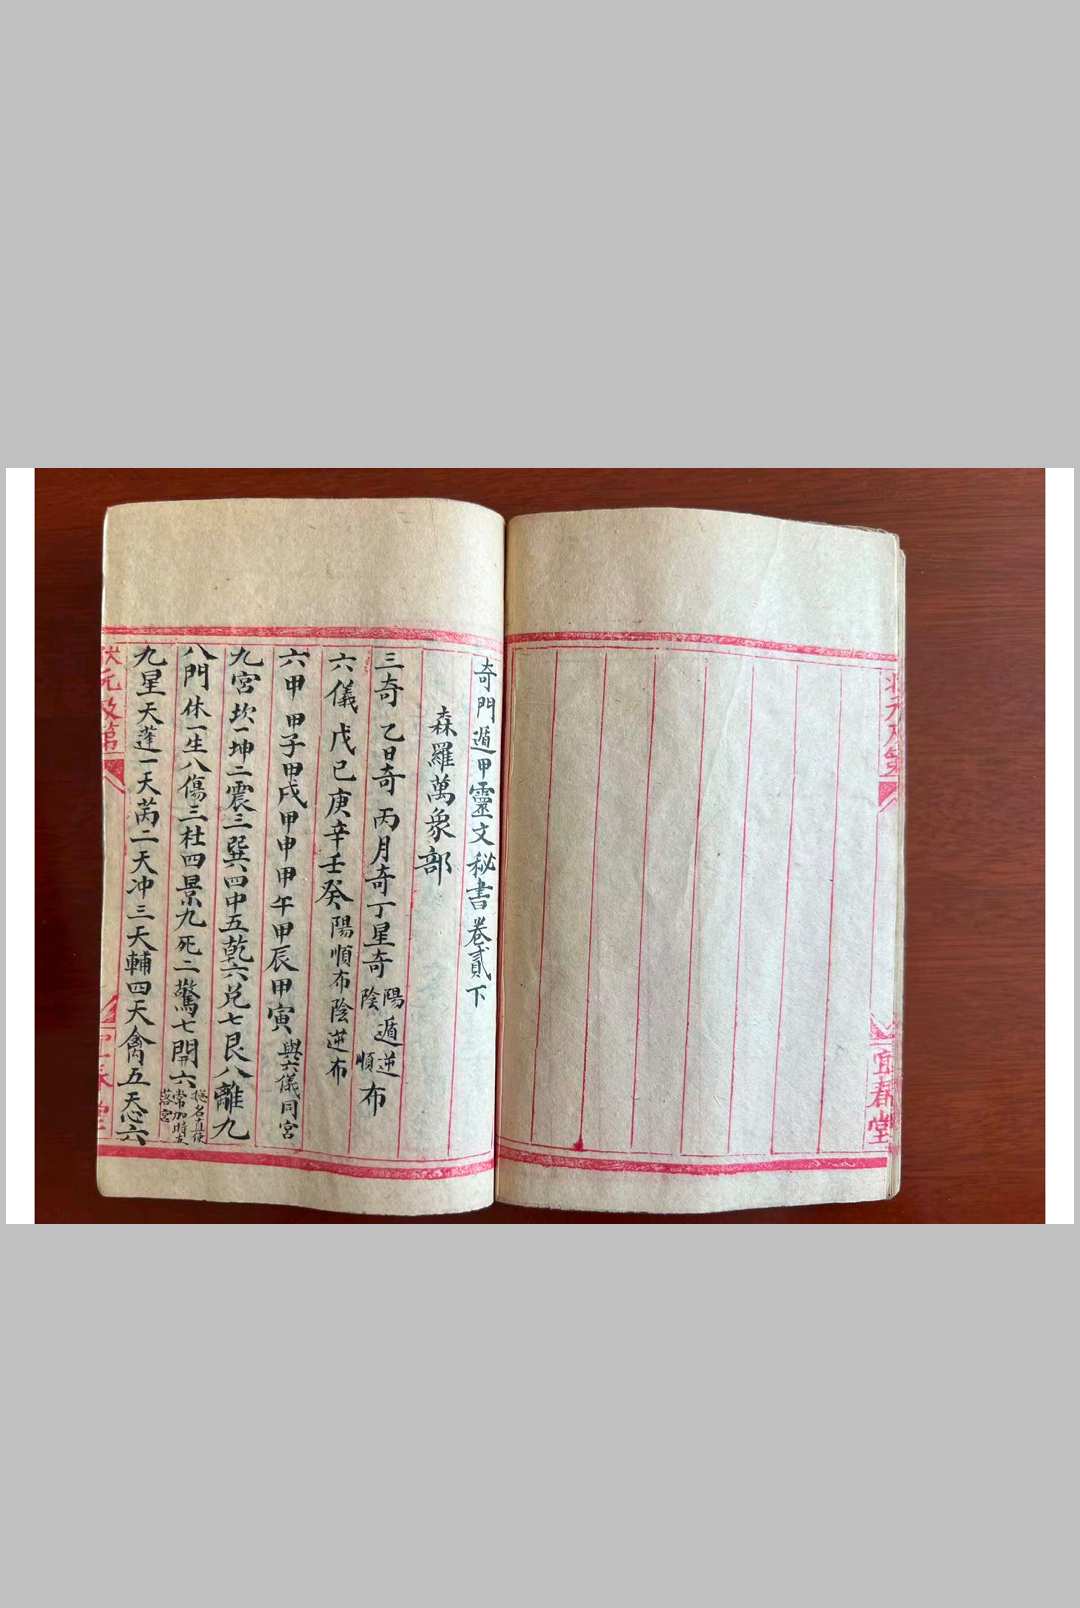 宜春堂
奇門遁甲靈文秘書卷貳下
森羅萬象部
三奇 乙日奇 丙月奇 丁星奇 陽遁逆 陰順布
六儀 戊己庚辛壬癸 陽順布陰逆布
六甲 甲子甲戌甲申甲午甲辰甲寅 與六儀同宮
九宮 坎一坤二震三巽四中五乾六兌七艮八離九
八門 休一生八傷三杜四景九死二驚七開六 名直使 常加時支 落宮
九星 天蓬一天芮二天冲三天輔四天禽五天心六